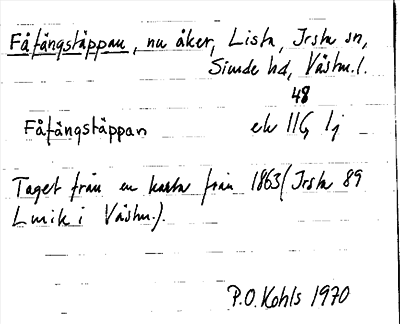 Fåfängstäppan, nu åker, Lista, Irsta sn,
Siende hd, Västm.l.
48
Fåfängstäppan ek 11G 1j
Taget från en karta från 1863 (Irsta 89
Lmik i Västm.).
P.O. Kohls 1970